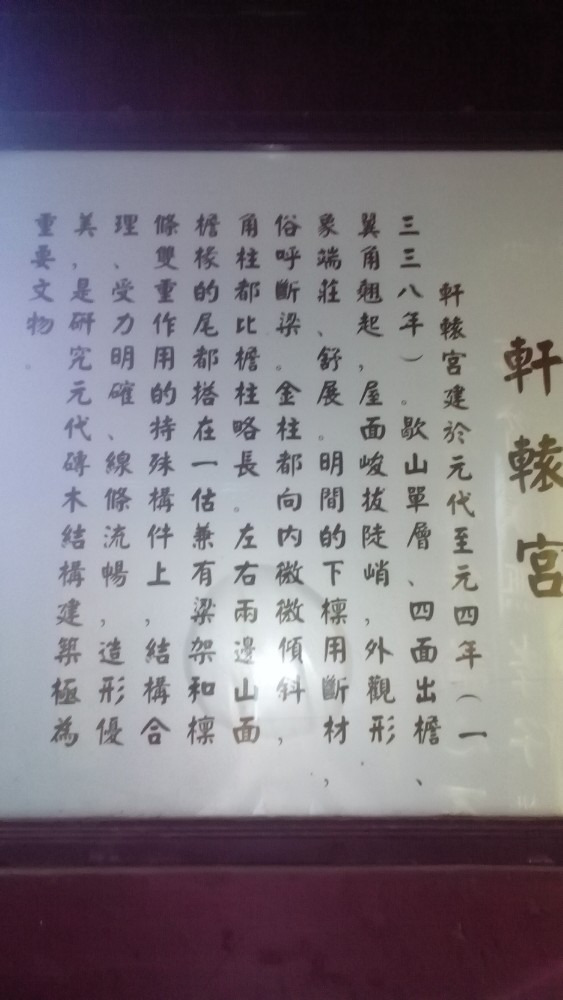 軒轅宮
軒轅宮建於元代至元四年（一
三三八年）。歇山單層、四面出檐、
翼角翹起，屋面峻拔陡峭，外觀形
象端莊、舒展。明間的下檁用斷材，
俗呼斷梁。金柱都向内微微傾斜，
角柱都比檐柱略長。左右兩邊山面
檐椽的尾都搭在一估兼有梁架和檁
條雙重作用的特殊構件上，結構合
理、受力明確、線條流暢，造形優
美，是研究元代磚木結構建築極為
重要文物。